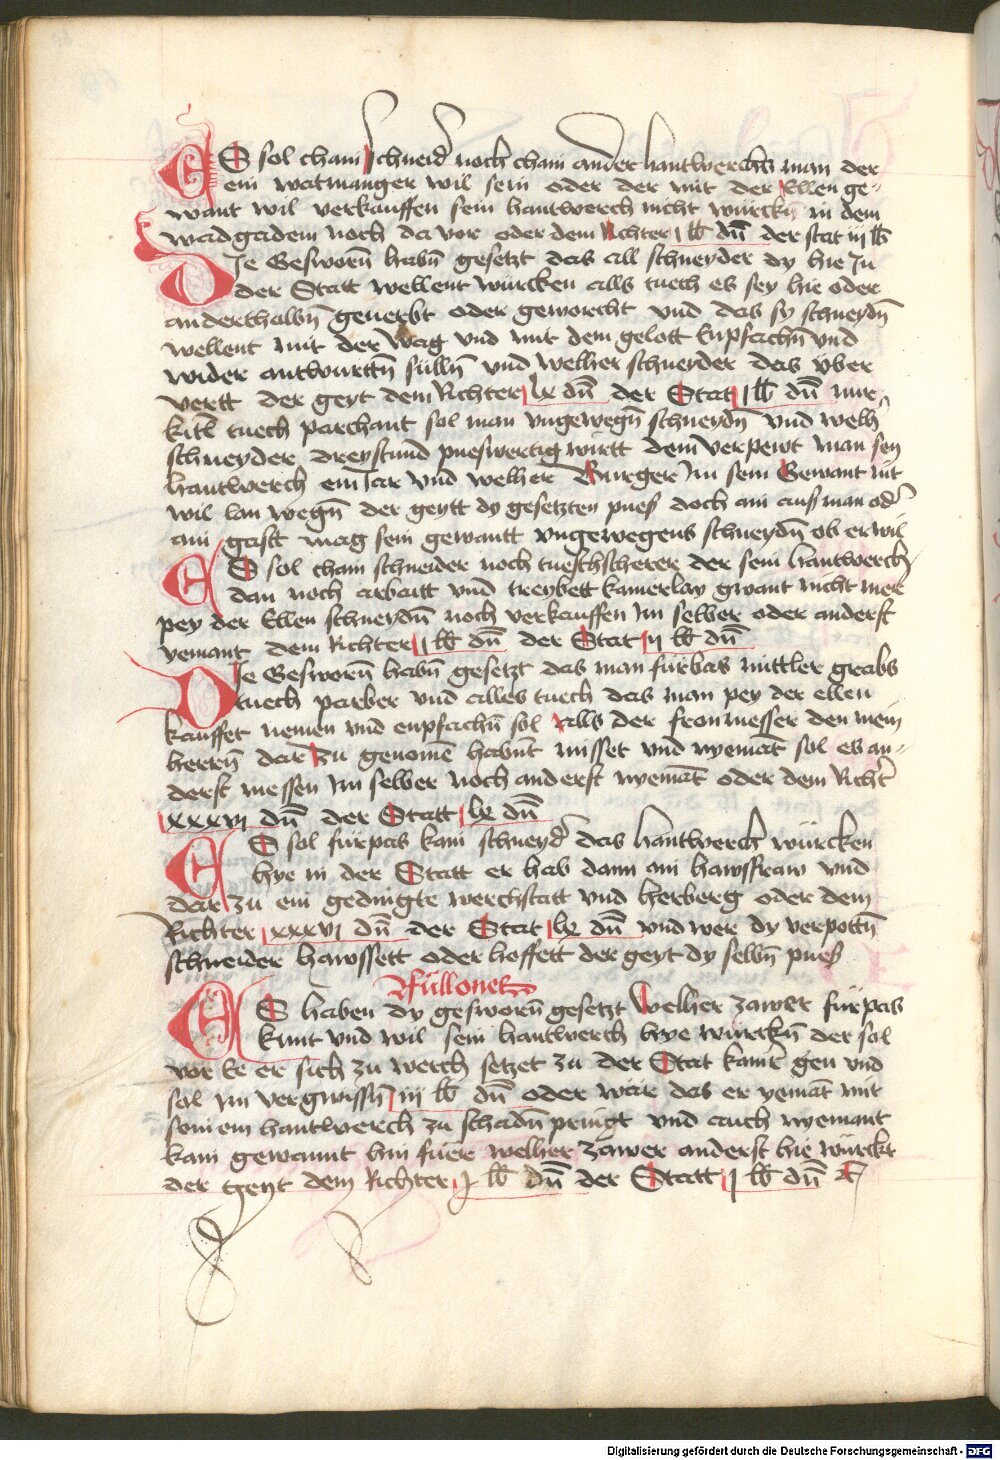 ES sol cham schneid̄ noch cham ander hantwerchs man der
ein watmanger wil sein oder der mit der Ellen ge-
want wil verkauffen sein hantwerch nicht würckn̄ in dem
wadgadem noch da vor oder dem richter j lb dn̄ der stat iij lb
DIe Geswornn̄ habn̄ gesetzt das all schneyder dy hie Jn
der Statt wellent würcken alls tuech es sey hie oder
anderthalbn̄ geuerbt oder geworcht vnd das sy schneydn̄
wellent mit der wag vnd mit dem gelott Enpfachn̄ vnd
wider antwurttn̄ sülln̄ vnd welher schneyder das vber
vertt der geyt dem Richter lx dn̄ der Stat j lb dn̄ nur
kitl tuech parchant sol man vngewegn̄ schneydn̄ vnd welh
schneyder dreystund pueswertig wirtt dem verpewt man sein
hantwerch ein Jar vnd welher Burger Jm sein Gewant nit
wil lan wegn̄ der geytt dy gesetzten pues doch ain auss man od̄
ain gastt mag sein gewantt vngewegens schneydn̄ ob er wil
ES sol cham schneider noch tuechscherer der sein hantwerch
dan noch arbaitt vnd treybett kamerlay gwant nicht mer
pey der Ellen schneydn̄ noch verkauffen Jm selber oder anderst
yemant dem Richter j lb dn̄ der Stat ij lb dn̄
DIe Geswornn̄ habn̄ gesetzt das man fürbas mittler grabs
tuech parber vnd alles tuech das man pey der ellen
kauffet nemen vnd enpfachn̄ sol alls der fronmesser den mein
herrn̄ dar zu genomē habn̄t misset vnd nyemāt sol es an-
derst messen Jm selber noch anderst nyemāt oder dem Richt̄
xxxvj dn̄ der Statt lx dn̄
ES sol fürpas kain schneyd̄ das hantwerch würcken
hye in der Statt er hab dann ain hawsfraw vnd
dar zu ein gedingte werchstatt vnd herberg oder dem
Richter xxxvj dn̄ der Stat lx dn̄ vnd wer dy verpottn̄
schneider hawssett oder hoffett der geyt dy selbn̄ pues
Fullones
ES haben dy geswornn̄ gesetzt welher zawer fürpas
kumt vnd wil sein hantwerch hye würckn̄ der sol
vor Ee er sich zu werch setzet zu der Stat kamr̄ gen vnd
sol Jm vergwissn̄ iij lb dn̄ oder wār das er yemāt mit
seinem hantwerch zu schadn̄ pringt vnd auch nyemant
kain gewannt hin füer welher zawer anderst hie würckt
der geyt dem Richter j lb dn̄ der Statt j lb dn̄
Digitalisierung gefördert durch die Deutsche Forschungsgemeinschaft - DFG